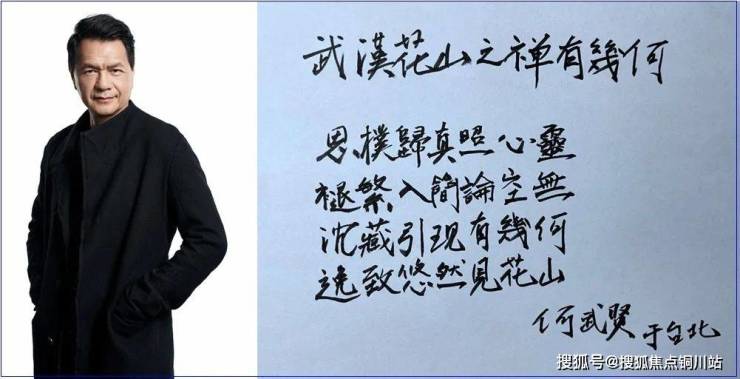 武漢花山之禅有幾何
恩樸歸真照心靈
褪繁入簡論空無
沈藏引现有幾何
逸致悠然見花山
何武賢于台北
搜狐号@搜狐焦点铜川站